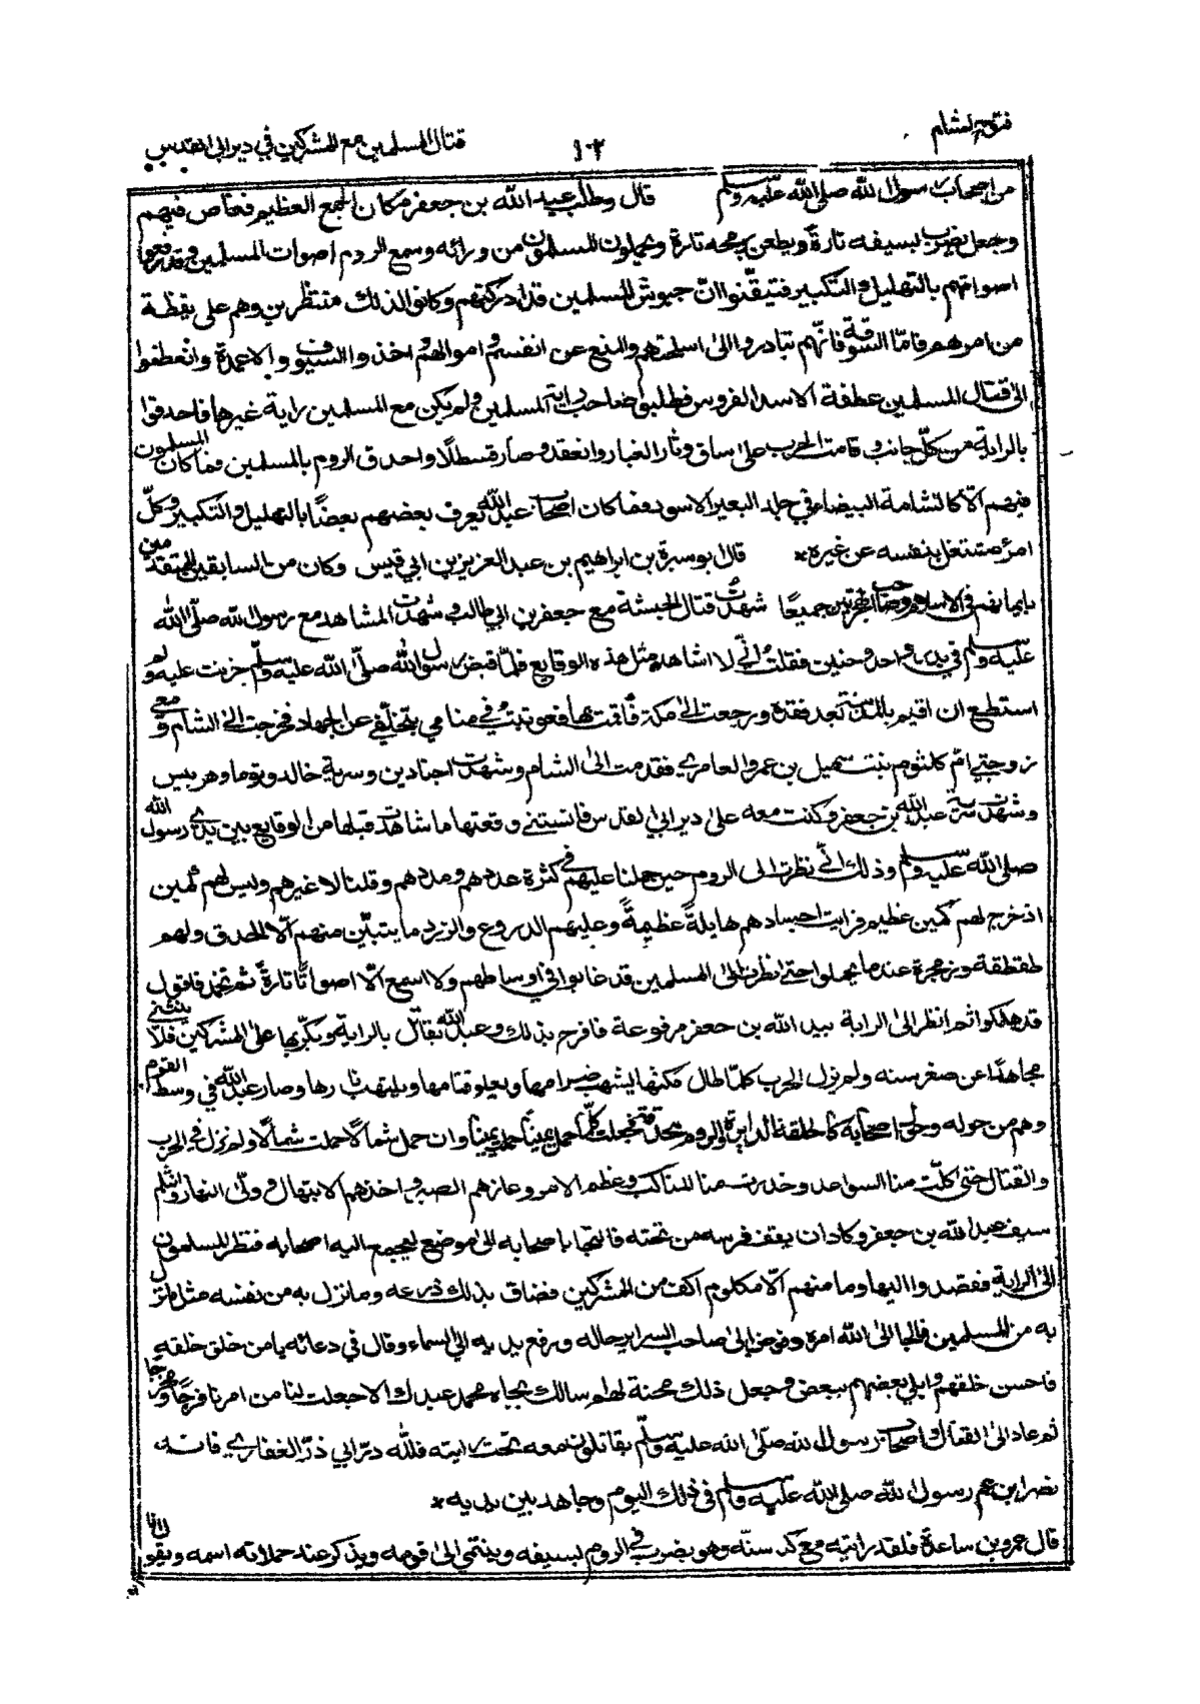 فتوح الشام
١٠٢
قتال المسلمين مع المشركين في دير ابي القدس
من اصحاب رسول الله صلى الله عليه وسلم قال وطلب عبد الله بن جعفر مكان الجمع العظيم فغاص فيهم
وجعل يضرب بسيفه تارةً ويطعن برمحه تارة ويحملون المسلمون من ورائه وسمع الروم اصوات المسلمين وقد رفعوا
اصواتهم بالتهليل والتكبير فتيقّنوا انّ جيوش المسلمين قد ادركتهم وكانوا لذلك منتظرين وهم على يقظة
من امرهم فامّا السوقة فانّهم تبادروا الى اسلحتهم والمنع عن انفسهم واموالهم واخذوا السيوف والاعمدة وانعطفوا
الى قتال المسلمين عطفة الاسد الفروس فطلبوا صاحب راية المسلمين ولم يكن مع المسلمين راية غيرها فاحدقوا
بالراية من كلّ جانب وقامت الحرب على ساق وثار الغبار وانعقد وصار قسطلًا واحدق الروم بالمسلمين فما كان المسلمون
فيهم الّا كالشامة البيضاء في جلد البعير الاسود فما كان اصحاب عبد الله يعرف بعضهم بعضًا بالتهليل والتكبير وكلّ
امرءٍ مشتغل بنفسه عن غيره * قال ابو سبرة بن ابراهيم بن عبد العزيز بن ابي قيس وكان من السابقين المتقدمين
بايمانهم في الاسلام وصاحب الهجرتين جميعًا شهدتُ قتال الحبشة مع جعفر بن ابي طالب وشهدت المشاهد مع رسول الله صلّى الله
عليه وسلم في بدر واحد وحنين فقلتُ انّي لا اشاهد مثل هذه الوقايع فلمّا قبض رسول الله صلّى الله عليه وسلّم حزنت عليه ولم
استطع ان اقيم بالمدينة بعد فقده ورجعت الى مكة فاقمت بها فعوتبتُ في منامي بتخلّفي عن الجهاد فخرجت الى الشام ومعي
زوجتي ام كلثوم بنت سهيل بن عمرو العامري فقدمت الى الشام وشهدت اجنادين وسرية خالد وتوما وهربيس
وشهدت سرية عبد الله بن جعفر وكنت معه على دير ابي القدس فانستني وقعتها ما شاهدت قبلها من الوقايع بين يدي رسول الله
صلى الله عليه وسلم وذلك انّي نظرت الى الروم حين حملنا عليهم في كثرة عددهم ومددهم وقلنا لا غيرهم وليس لهم كمين
اذ خرج لهم كمين عظيم فرايت اجسادهم هايلةً عظيمةً وعليهم الدروع والزرد ما يتبيّن منهم الّا الحدق ولهم
طقطقة وزمجرة عندما يحملوا حتى انظر الى المسلمين قد غابوا في اوساطهم ولا اسمع الّا اصواتًا تارةً ثم تخمد فاقول
قد هلكوا ثم انظر الى الراية بيد الله بن جعفر مرفوعة فافرح بذلك وعبد الله يقاتل بالراية ويكرّ بها على المشركين فلا ينثني
مجاهدًا عن صغر سنه ولم تزل الحرب كلّما طال مكثها يشهب ضرامها ويعلو قتامها ويلتهب نارها وصار عبد الله في وسط القوم
وهم من حوله وحلق اصحابه كالحلقة الدايرة والروم محدقة فجعلت كلّما حمل يمينًا حملت يمينًا وان حمل شمالًا حملت شمالًا ولم نزل في الحرب
والقتال حتى كلّت منا السواعد وخدرت منا المناكب وعظم الامر وعازهم الصبر واخذهم الابتهال وولّى النهار وانثلم
سيف عبد الله بن جعفر وكاد ان يقف فرسه من تحته فالتجا باصحابه الى موضع ليجمع اليه اصحابه فنظر المسلمون
الى الراية فقصدوا اليها وما منهم الّا مكلوم اكف من المشركين فضاق بذلك ذرعه وما نزل به من نفسه مثل ما نزل
به من المسلمين فالجا الى الله امره وفوض الى صاحب السراير حاله ورفع يديه الى السماء وقال في دعائه يا من خلق خلقه
فاحسن خلقهم وابلي بعضهم ببعض وجعل ذلك محنة لهم اسالك بجاه محمد عبدك الا جعلت لنا من امرنا فرجًا ومخرجًا
ثم عاد الى القتال واصحاب رسول الله صلّى الله عليه وسلّم يقاتلون معه تحت رايته فللّه درّ ابي ذرّ الغفاري فانه
نصر ابن عم رسول الله صلى الله عليه وسلم في ذلك اليوم وجاهد بين يديه *
قال عمرو بن ساعدة فلقد رايته مع كبر سنّه وهو يضرب في الروم بسيفه وينتمي الى قومه ويذكر عند حملاته اسمه ويقول انا